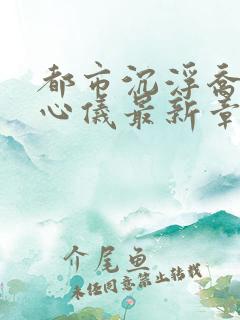 都市沉浮乔
心仪最新章
介尾鱼
未经同意禁止转载